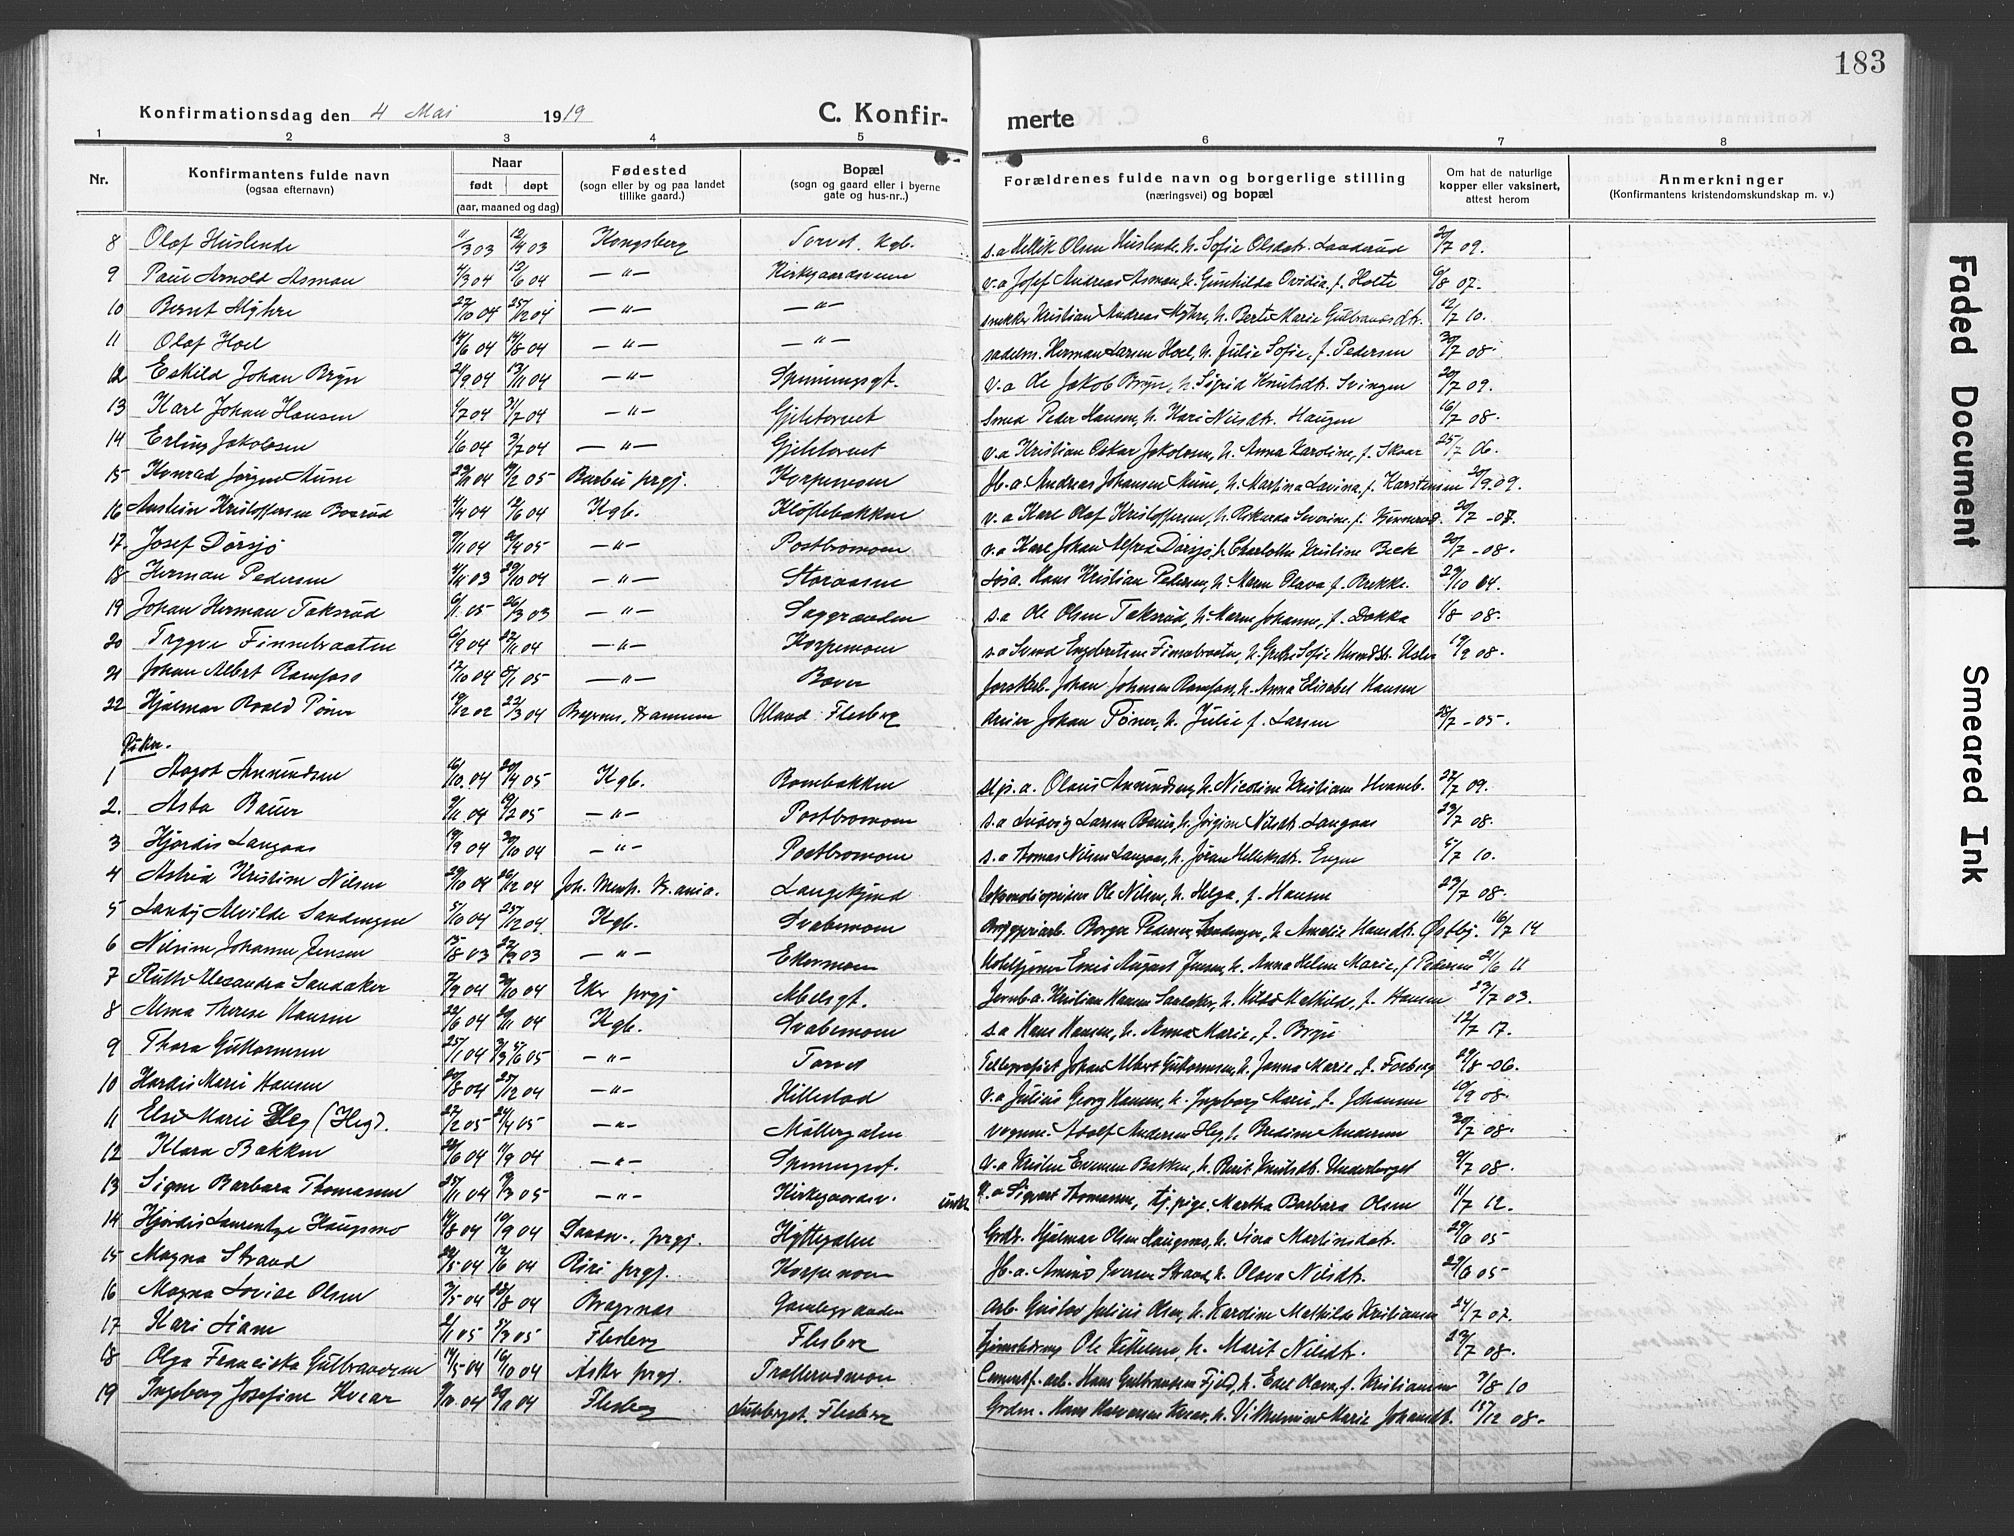 183
Konfirmationsdag den 4 Mai 1919 C. Konfir- merte
1 2 3 4 5 6 7 8
Nr. Konfirmantens fulde navn (ogsaa efternavn) Naar født døpt (aar, maaned og dag) Fødested (sogn eller by og paa landet tillike gaard.) Bopæl (sogn og gaard eller i byerne gate og hus-nr..) Forældrenes fulde navn og borgerlige stilling (næringsvei) og bopæl Om hat de naturlige kopper eller vaksinert, attest herom Anmerkninger (Konfirmantens kristendomskundskap m. v.)
8 Olaf Huslende 11/3 03 12/4 03 Kongsberg Torvet Kgb. s.a Hellik Olsen Huslende, h. Sofie Olsdatr. Landrud 20/7 09.
9 Paul Arnold Asman 4/3 04 12/6 04 — " — Kirkgaardsveien v.a Josef Andreas Asman, h. Gunhilda Ovidia, f. Holte 6/8 07.
10 Bernt Myhre 27/10 04 25/12 04 — " — — " — snekker Kristian Andreas Myhre, h. Berte Marie Gulbrandsdtr. 12/7 10.
11 Olaf Hoel 14/6 04 14/8 04 — " — — " — sadelm. Herman Larsen Hoel, h. Julie Sofie, f. Pedersen 30/7 08.
12 Eskild Johan Bryn 21/9 04 13/11 04 — " — Spinningsgt. v.a Ole Jakob Bryn, h. Sigrid Knutsdtr. Svingen 20/7 09.
13 Karl Johan Hansen 1/7 04 31/7 04 — " — Gjetetorvet Smed Peder Hansen, h. Kari Nilsdtr. Haugen 16/7 08.
14 Erling Jakobsen 1/6 04 3/7 04 — " — Gjetetorvet v.a Kristian Oskar Jakobsen, h. Anna Karoline, f. Skaar 25/7 06.
15 Konrad Jørgen Aune 05 Barbu prgj. Korpemoen Jb.a. Andreas Johansen Aune, h. Martina Lavina, f. Karstensen 20/9 09.
16 Anstein Kristoffersen Bosrud 4/4 04 12/6 04 Kgb. Kløftebakken v.a Karl Olaf Kristoffersen, h. Rikarda Severine, f. 20/7 - 07.
17. Josef Dørsjø 9/11 04 2/4 05 — " — Postbromoen v.a Karl Johan Alfred Dørsjø, h. Charlotte Kristine Beck 20/7 - 08.
18 Herman Pedersen 4/11 03 10 04 — " — Storaasen Hans Kristian Pedersen, h. Maren Olava, f. Brekke. 29/10 04.
19 Johan Herman Taksrud 6/1 05 26/3 03 — " — Saggrenden s.a Ole Olsen Taksrud, h. Maren Johanne, f. Dokka 1/8 08.
20 Trygve Finnebraaten 6/9 04 27/11 04 — " — Korpemoen s.a Svend Engebretsen Finnebraaten, h. Grethe Sofie 19/9 08.
21 Johan Albert Ramfoss 12/10 04 8/1 05 — " — Baver forskerb. Johan Johnsen Ramfoss, h. Anna Elisabet Hansen
22 Hjalmar Roald Tøner 19/12 02 22/3 04 Bragernes, Drammen Aland Flesberg dreier Johan Tøner, h. Julie f. Larsen 28/7 - 05.
Piker.
1 Aagot Amundsen 16/10 04 20/4 05 Kgb. Bombakken slps.a. Olaus Amundsen, h. Nicoline Kristiane 27/7 09.
2. Asta Bauer 9/11 04 19/2 05 — " — Postbromoen s.a Ludvig Larsen Bauer, h. Jørgine Nilsdt. Langaas 23/7 08.
3 Hjørdis Langaas 19/9 04 30/10 04 — " — Postbromoen s.a Thomas Nilsen Langaas, h. Jøran Helleksdtr. Engen 5/7 10.
4 Astrid Kristine Nilsen 29/10 04 26/12 04 Joh. Menh. Kr.ania. Langekjend Lokomotivpudser Ole Nilsen, h. Helga, f. Hansen 23/7 08.
5 Landy Alvilde Sandengen 5/10 04 25/12 04. Kgb. Svabemoen Bryggeriarb. Borger Pedersen Sandengen, h. Amelie Hansdtr. Østby. 16/7 14
6 Nilsine Johanne Jensen 13/8 03 03 — " — Ekermoen Hotelfjener August Jensen, h. Anna Helene Marie, f. Pedersen 21/6 11
7 Ruth Alexandra Sandaker 7/9 04 30/10 04 Eker prgj Abelsgt. Jernb.a. Kristian Hansen Sandaker, h. Hilda Mathilde, f. Hansen 23/7 03.
8 Alma Therese Hansen 22/6 04 20/11 04 Kgb. Svabemoen s.a Hans Hansen, h. Anna Marie, f. Bryn 12/7 17.
9 Thora Guttormsen 25/1 04 05 — " — Torvet Tellegrafist Johan Albert Guttormsen, h. Janna Marie, f. Forberg 29/8 - 06.
10 Hardis Marie Hansen 20/8 04 25/12 04 — " — Hillestad v.a Julius Georg Hansen, h. Ingeborg Marie, f. Johansen 10/9 08.
11 Else Marie Heg (Heg). 27/2 05 24/4 05 — " — Møllerdalen vognm. Adolf Andersen Heg, h. Bredine Andersen 30/7 08.
12 Klara Bakken 24/6 04 11/9 04 — " — Spinningsgt. v.a Kristen Evensen Bakken, h. Berit Knutsdt. Underberget 9/7 08.
13 Signe Barbara Thomassen 25/11 04 3 05 — " — Kirkegaardsv. v.a Sigvart Thomassen, tj.pige Martha Barbara Olsen 11/7 12.
14 Hjørdis Laurentze Haugsmo 14/8 04 19/9 04 prgj. Hyttegaten Grdr. Hjalmar Olsen Haugsmo, h. Lina Martinsdatr. 29/6 05
15 Magna Strand 22/5 04 12/6 04 Riri prgj. Korpemoen Jb.a. Amund Iversen Strand, h. Olava Nilsdtr. 29/6 05.
16 Magna Lovise Olsen 7/5 04 28/8 04 Bragernæs Gamlegrenden arb. Gustav Julius Olsen, h. Karoline Mathilde Kristiansen 24/7 07.
17 Kari Liane 2/1 05 5/3 05 Flesberg Flesberg Ole Kittelsen, h. Marit Nilsdtr. 23/7 08.
18 Olga Franciska Gulbrandsen 14/5 04 16/10 04 Asker prgj Trollerudmoen Cementf.arb. Hans Gulbrandsen Fjeld, h. Edel Olava, f. Kristiansen 9/8 10
19 Ingeborg Josefine Hvaar 04 04 Flesberg Lurberget. Flesberg Grdm. Hans Halvorsen Hvaar, h. Vilhelmine Marie Johansdt. 15/12 08.
Faded Document
Smeared Ink